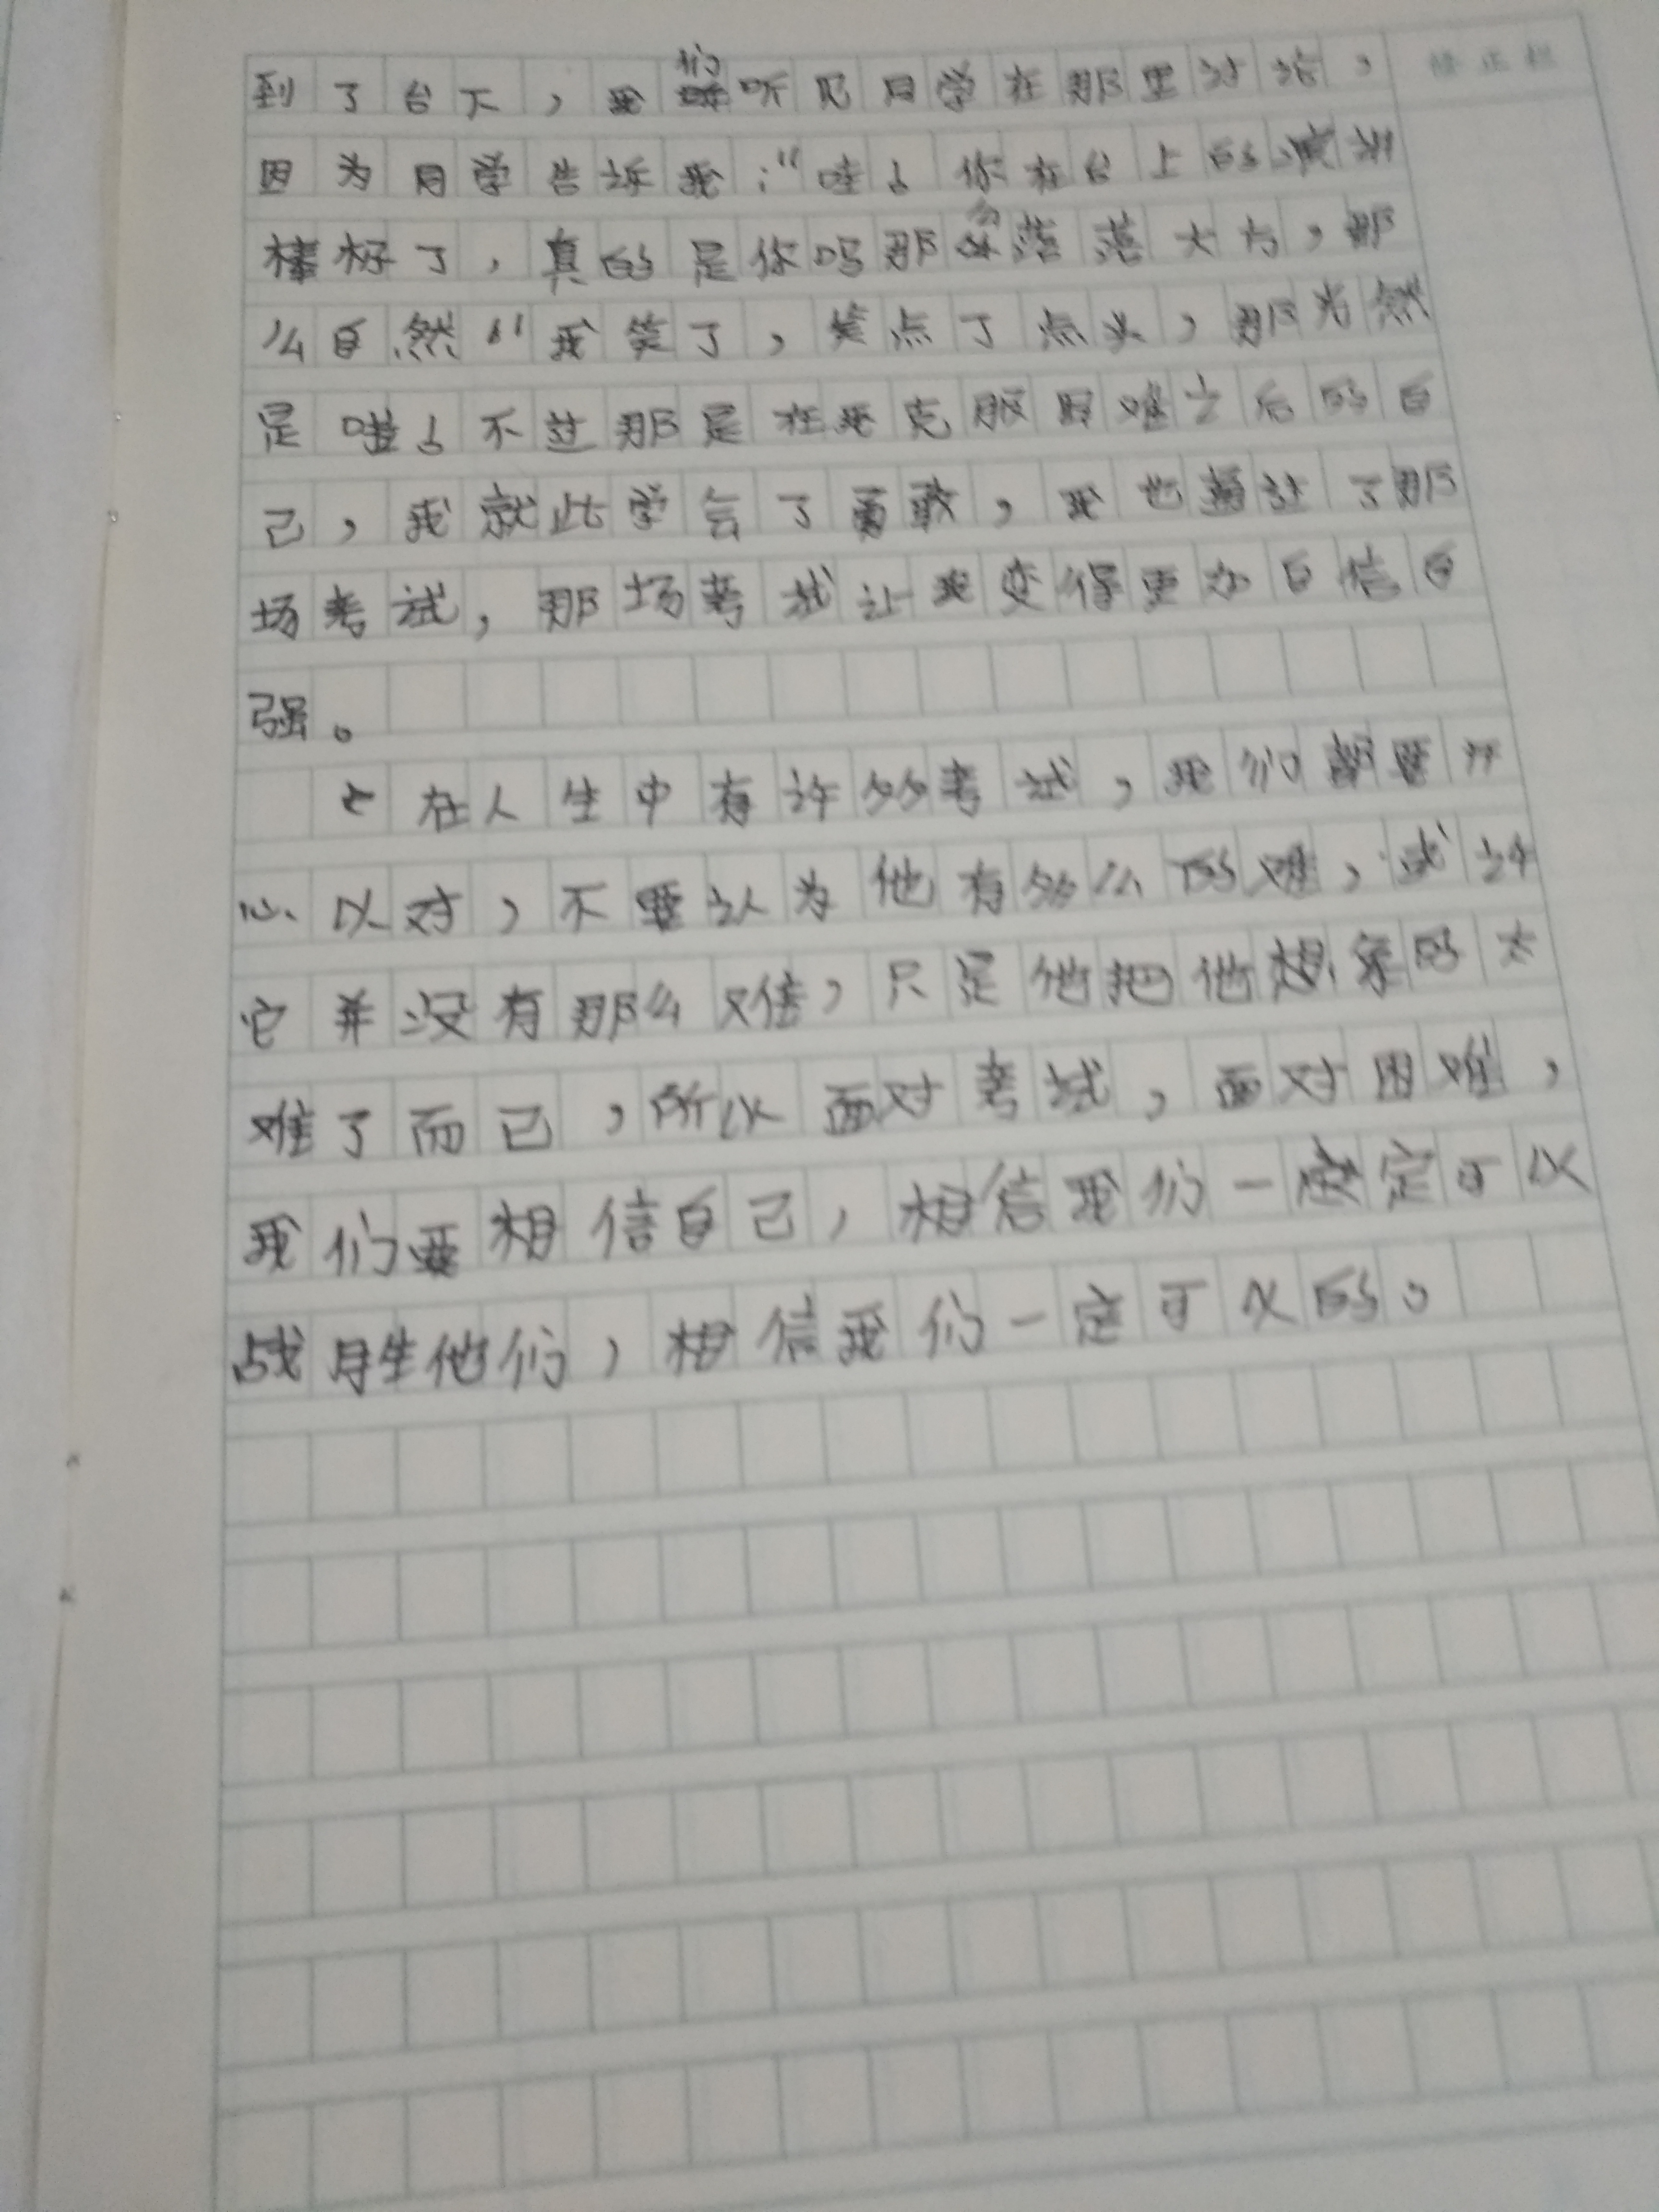 到了台下，我们听见同学在那里讨论，
修正栏
因为同学告诉我：“哇！你在台上的演讲
棒极了，真的是你吗那么落落大方，那
么自然”我笑了，笑点了点头，那当然
是啦！不过那是在我克服困难之后的自
己，我就此学会了勇敢，我也通过了那
场考试，那场考试让我变得更加自信自
强。
在人生中有许多考试，我们都要开
心以对，不要认为他有多么的难，或许
它并没有那么难，只是他把他想象的太
难了而已，所以面对考试，面对困难，
我们要相信自己，相信我们一定可以
战胜他们，相信我们一定可以的。